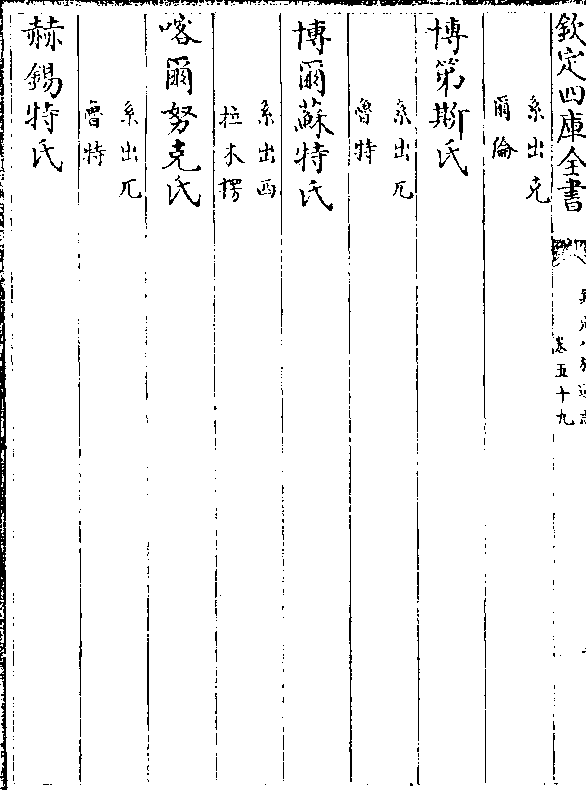 欽定四庫全書
卷五十九
系出克
爾倫
博第斯氏
系出兀
魯特
博爾蘇特氏
系出西
拉木楞
喀爾努克氏
系出兀
魯特
赫錫特氏